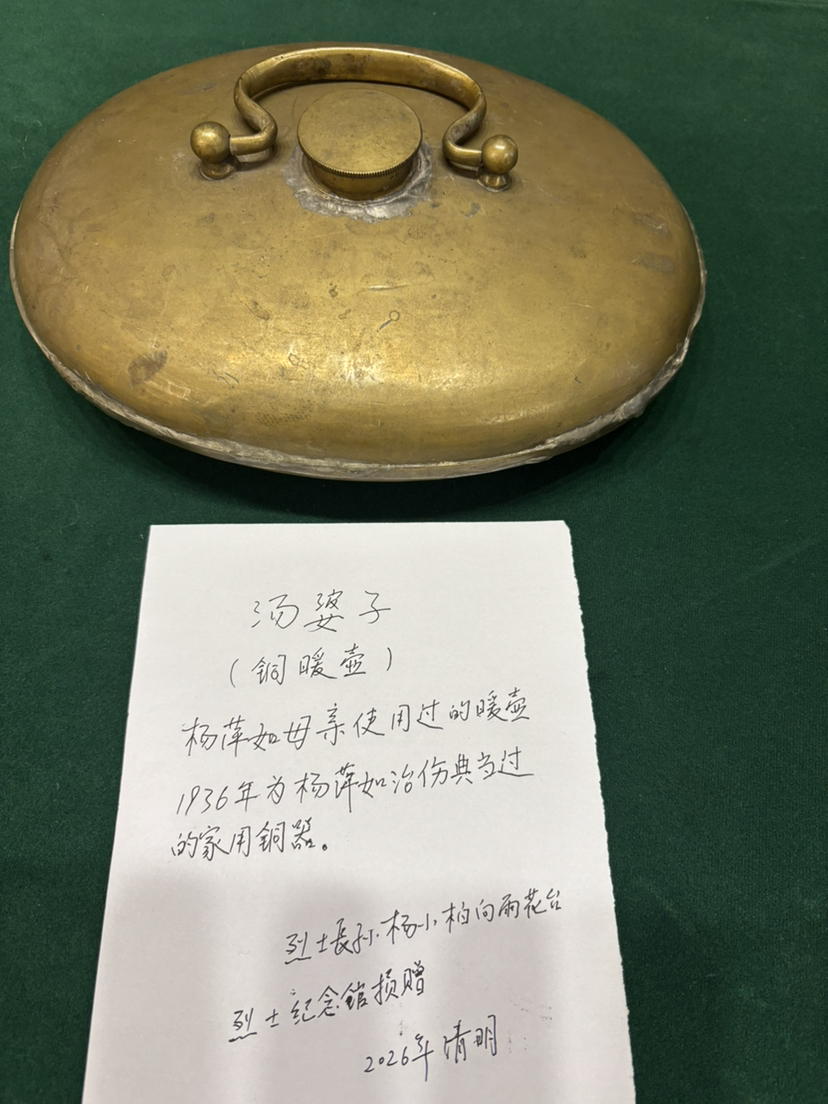 汤婆子
(铜暖壶)
杨萍如母亲使用过的暖壶
1936年为杨萍如治伤典当过
的家用铜器。
烈士長孙杨小柏向雨花台
烈士纪念馆损赠
2026年清明